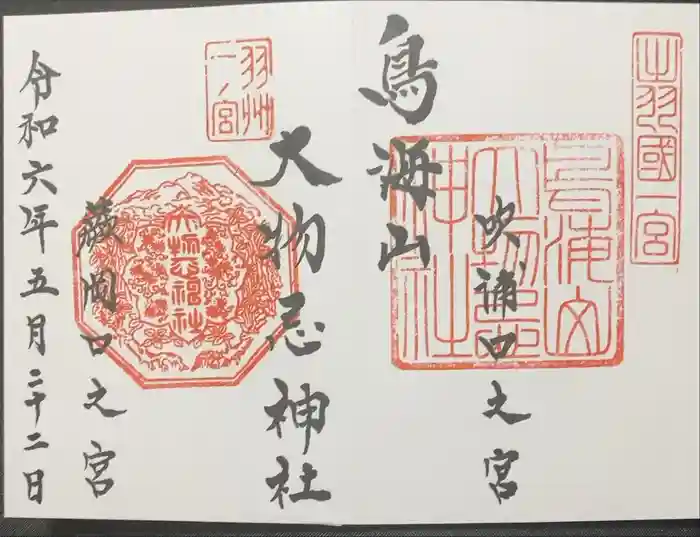 出羽國一宮
吹浦口之宮
鳥海山
大物忌
神社
鳥海山
大物忌神社
羽州
一ノ宮
大物忌神社
蕨岡口之宮
令和六年五月二十二日